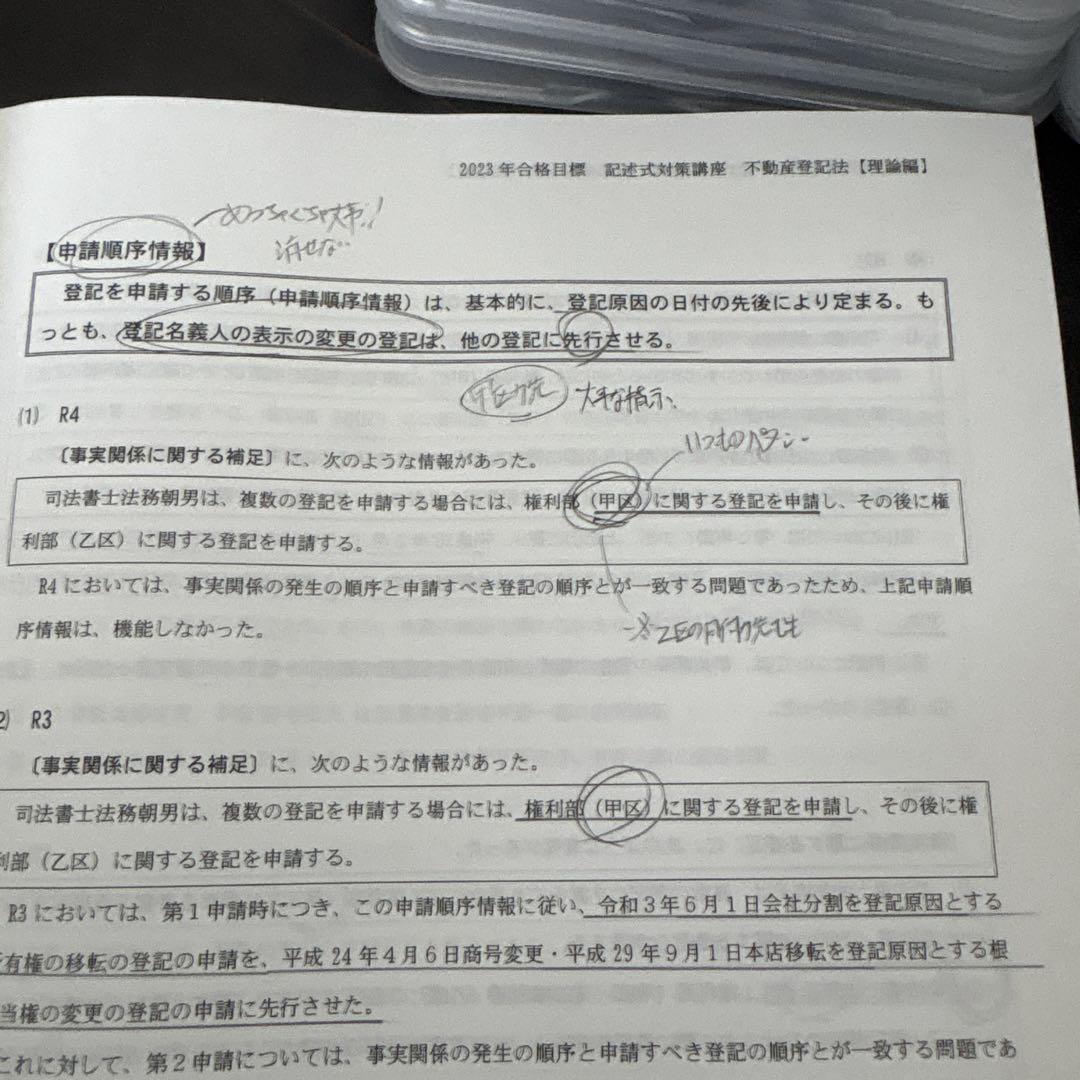 2023年合格目標　記述式対策講座　不動産登記法【理論編】
めっちゃくちゃ大事!!
【申請順序情報】
消せない
登記を申請する順序（申請順序情報）は、基本的に、登記原因の日付の先後により定まる。も
っとも、登記名義人の表示の変更の登記は、他の登記に先行させる。
甲区が先
大事な指示、
(1)　R4
いつものパターン
〔事実関係に関する補足〕に、次のような情報があった。
司法書士法務朝男は、複数の登記を申請する場合には、権利部（甲区）に関する登記を申請し、その後に権
利部（乙区）に関する登記を申請する。
R4においては、事実関係の発生の順序と申請すべき登記の順序とが一致する問題であったため、上記申請順
序情報は、機能しなかった。
2)　R3
〔事実関係に関する補足〕に、次のような情報があった。
司法書士法務朝男は、複数の登記を申請する場合には、権利部（甲区）に関する登記を申請し、その後に権
利部（乙区）に関する登記を申請する。
R3においては、第1申請時につき、この申請順序情報に従い、令和3年6月1日会社分割を登記原因とする
有権の移転の登記の申請を、平成24年4月6日商号変更・平成29年9月1日本店移転を登記原因とする根
当権の変更の登記の申請に先行させた。
これに対して、第2申請については、事実関係の発生の順序と申請すべき登記の順序とが一致する問題であ